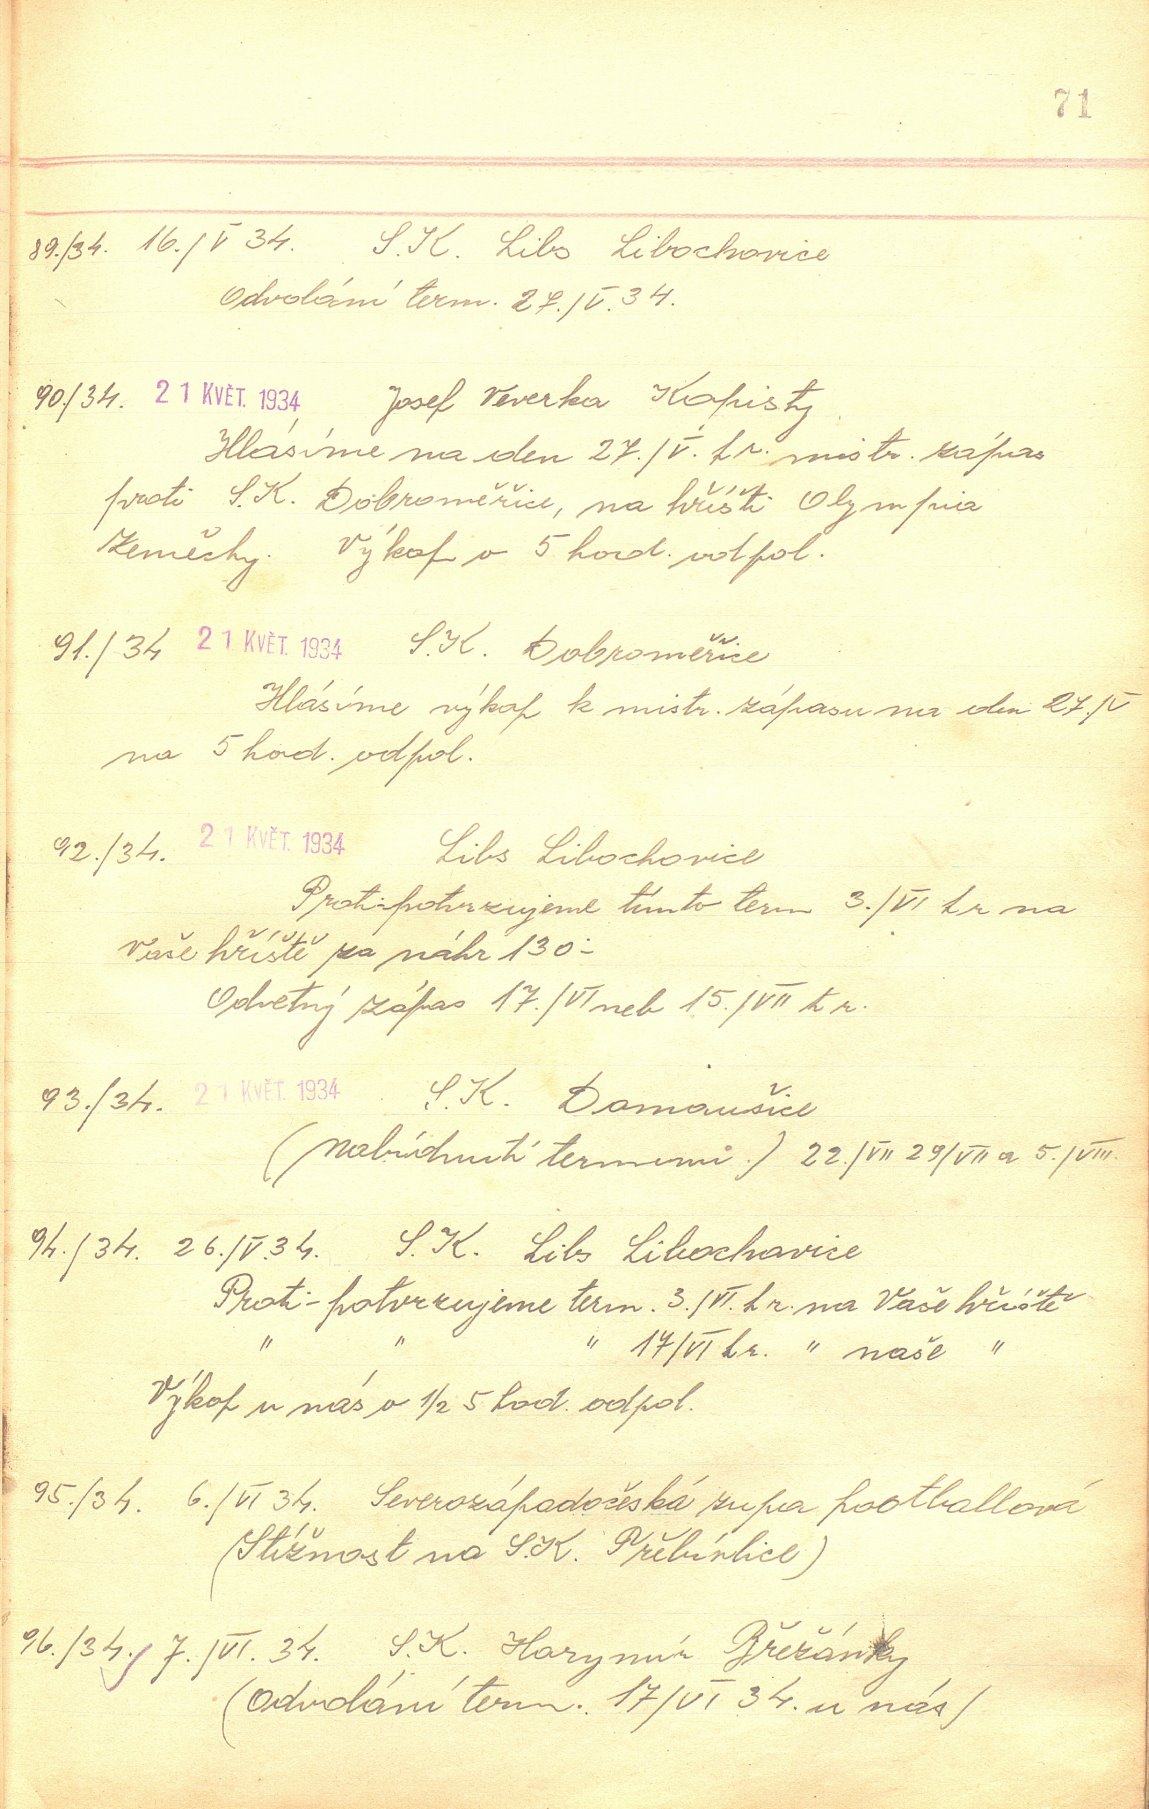 71
89./34. 16./V 34. S.K. Libs Libochovice
Odvolání term. 27./V.34.
90./34. 21 KVĚT. 1934 Josef Veverka Kopisty
Hlásíme na den 27./V. t.r. mistr. zápas
proti S.K. Dobroměřice, na hřišti Olympia
Zeměchy. Výkop v 5 hod. odpol.
91./34 21 KVĚT. 1934 S.K. Dobroměřice
Hlásíme výkop k mistr. zápasu na den 27./V
na 5 hod. odpol.
92./34. 21 KVĚT. 1934 Libs Libochovice
Proti-potvrzujeme tímto term 3./VI t r na
Vaše hříště za náhr 130.-
Odvetný zápas 17./VI neb 15./VII t r.
93./34. 21 KVĚT. 1934 S.K. Domaušice
(Nabídnutí termínů.) 22./VII 29/VII a 5./VIII.
94./34. 26./V.34. S.K. Libs Libochovice
Proti-potvrzujeme term. 3./VI. t r. na Vaše hříště
" " " 17/VI t.r. " naše "
Výkop u nás v 1/2 5 hod. odpol.
95./34. 6./VI 34. Severozápadočeská župa footballová
(Stížnost na S.K. Třebívlice)
96./34. 7./VI. 34. S.K. Horymír Břežánky
(Odvolání term. 17/VI 34. u nás)